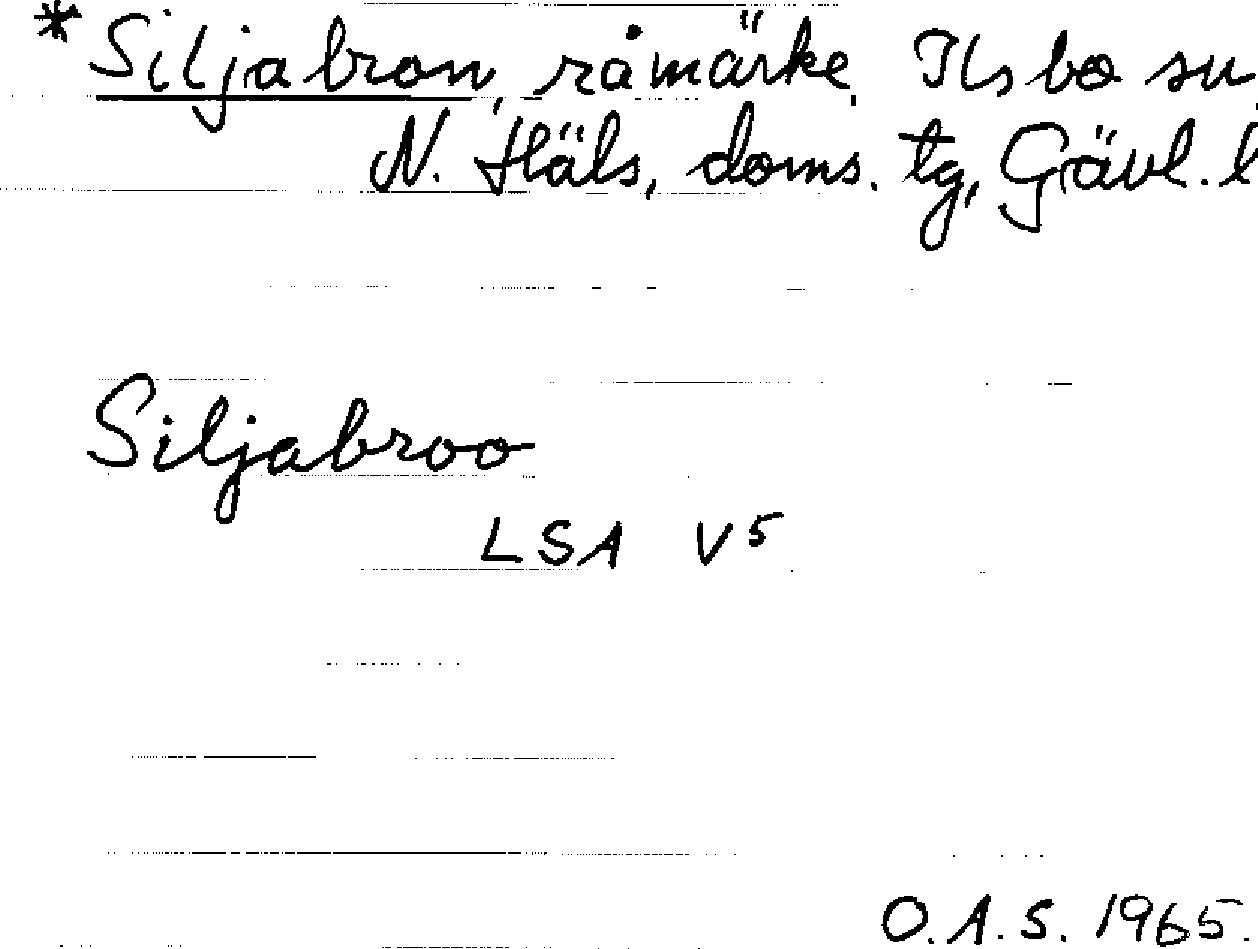 *Siljabron, råmärke. Ilsbo sn,
N. Häls, doms. tg, Gävl. l
Siljabroo
LSA V5
O.A.S. 1965.